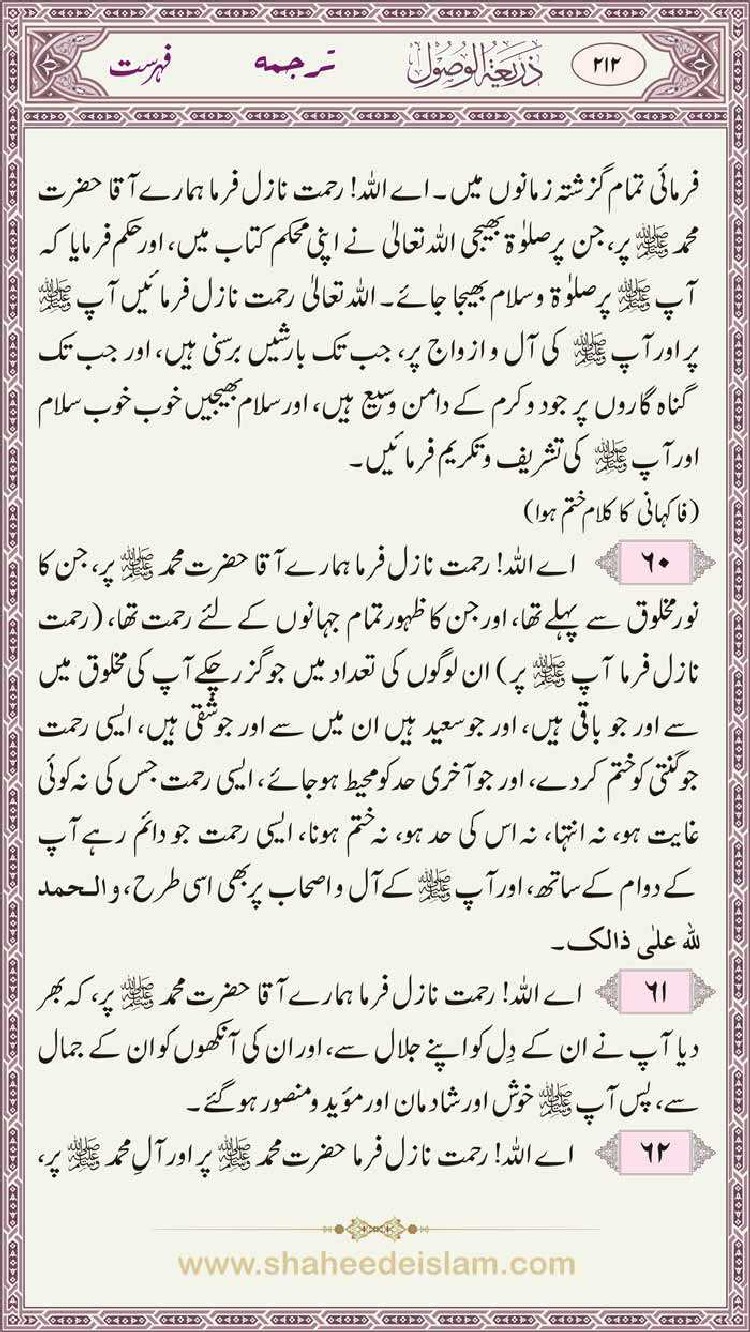 ۲۱۲ ذریعۃ الوصول ترجمہ فہرست
فرمائی تمام گزشتہ زمانوں میں۔ اے اللہ! رحمت نازل فرما ہمارے آقا حضرت
محمد ﷺ پر، جن پر صلوٰۃ بھیجی اللہ تعالیٰ نے اپنی محکم کتاب میں، اور حکم فرمایا کہ
آپ ﷺ پر صلوٰۃ وسلام بھیجا جائے۔ اللہ تعالیٰ رحمت نازل فرمائیں آپ ﷺ
پر اور آپ ﷺ کی آل و ازواج پر، جب تک بارشیں برسنی ہیں، اور جب تک
گناہ گاروں پر جود و کرم کے دامن وسیع ہیں، اور سلام بھیجیں خوب خوب سلام
اور آپ ﷺ کی تشریف و تکریم فرمائیں۔
(فاکہانی کا کلام ختم ہوا)
۶۰ اے اللہ! رحمت نازل فرما ہمارے آقا حضرت محمد ﷺ پر، جن کا
نور مخلوق سے پہلے تھا، اور جن کا ظہور تمام جہانوں کے لئے رحمت تھا، (رحمت
نازل فرما آپ ﷺ پر) ان لوگوں کی تعداد میں جو گزر چکے آپ کی مخلوق میں
سے اور جو باقی ہیں، اور جو سعید ہیں ان میں سے اور جو شقی ہیں، ایسی رحمت
جو گنتی کو ختم کردے، اور جو آخری حد کو محیط ہوجائے، ایسی رحمت جس کی نہ کوئی
غایت ہو، نہ انتہا، نہ اس کی حد ہو، نہ ختم ہونا، ایسی رحمت جو دائم رہے آپ
کے دوام کے ساتھ، اور آپ ﷺ کے آل و اصحاب پر بھی اسی طرح، والحمد
للہ علی ذالک۔
۶۱ اے اللہ! رحمت نازل فرما ہمارے آقا حضرت محمد ﷺ پر، کہ بھر
دیا آپ نے ان کے دِل کو اپنے جلال سے، اور ان کی آنکھوں کو ان کے جمال
سے، پس آپ ﷺ خوش اور شادمان اور مؤید و منصور ہوگئے۔
۶۲ اے اللہ! رحمت نازل فرما حضرت محمد ﷺ پر اور آلِ محمد ﷺ پر،
www.shaheedeislam.com